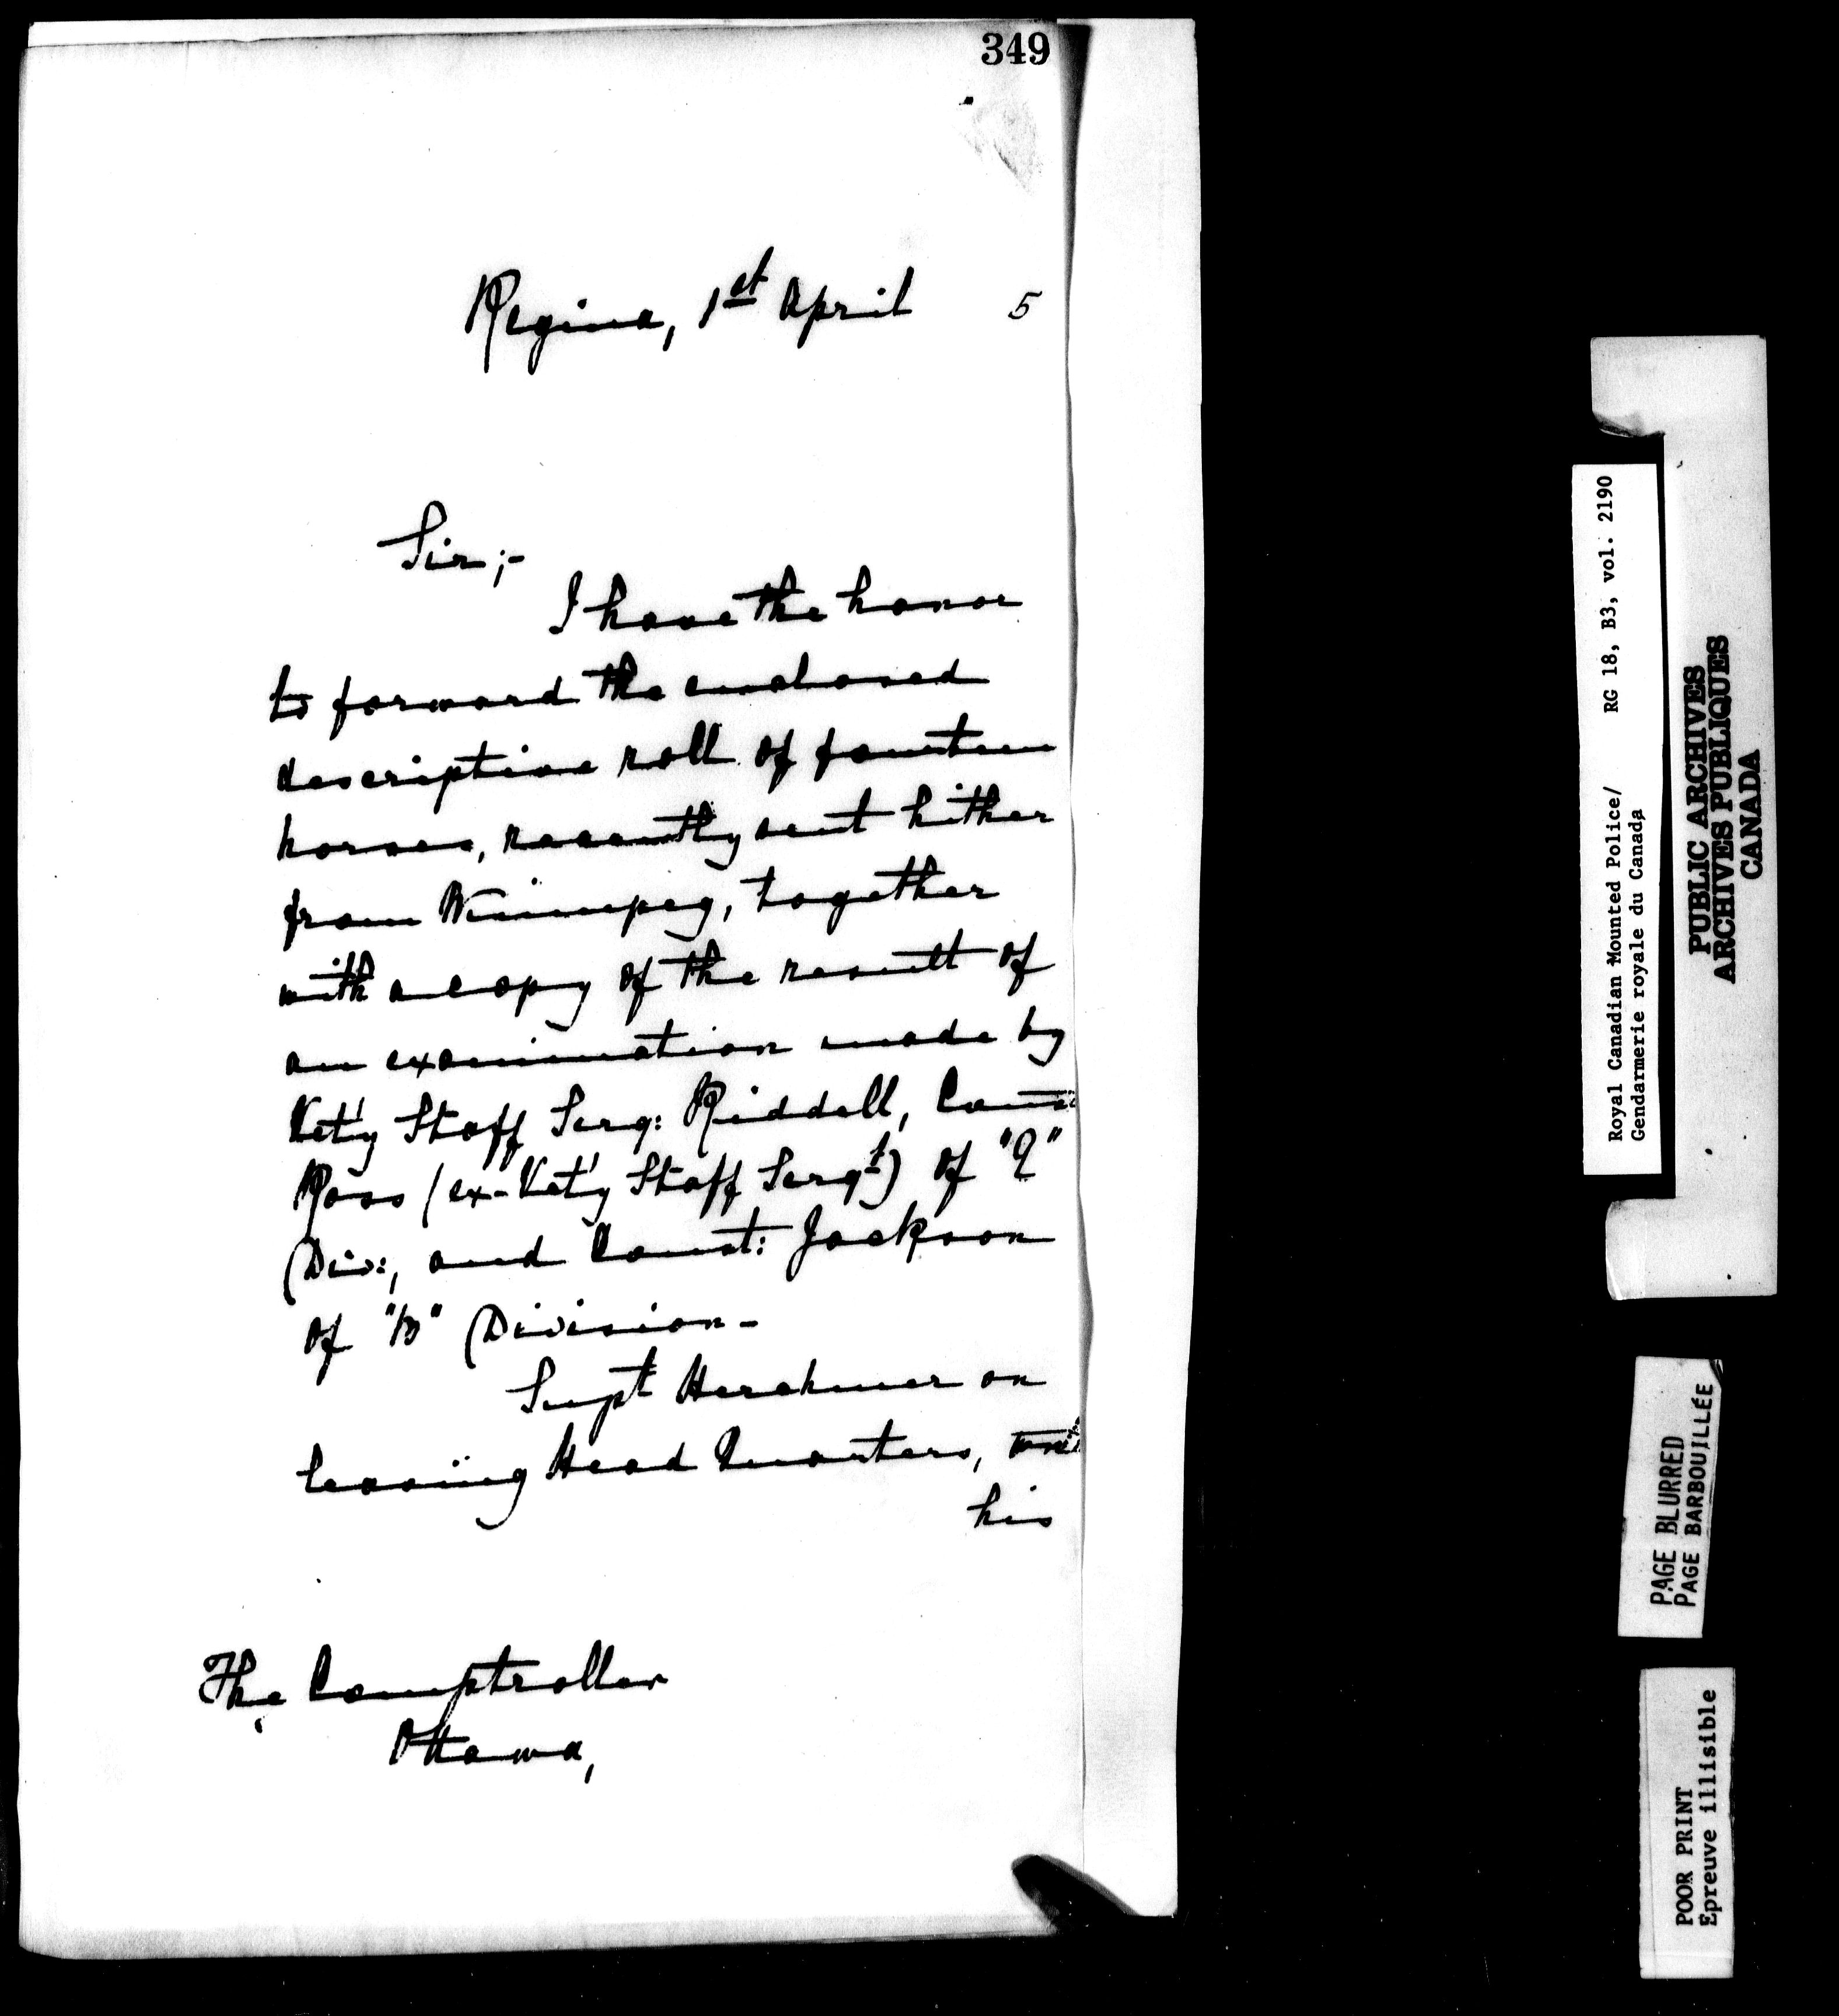 349
Regina, 1st April 5
Sir;-
I have the honor
to forward the enclosed
descriptive roll of fourteen
horses, recently sent hither
from Winnipeg, together
with a copy of the result of
an examination made by
Vet'y Staff Serg: Riddell, Const:
Ross (ex-Vet'y Staff Sergt) of
Div:, and Const: Jackson
of "B" Division-
Supt Herchmer on
leaving Head Quarters,
his
The Comptroller
Ottawa,
Royal Canadian Mounted Police/ RG 18, B3, vol. 2190
Gendarmerie royale du Canada
PUBLIC ARCHIVES
ARCHIVES PUBLIQUES
CANADA
PAGE BLURRED
PAGE BARBOUILLÉE
POOR PRINT
Epreuve illisible